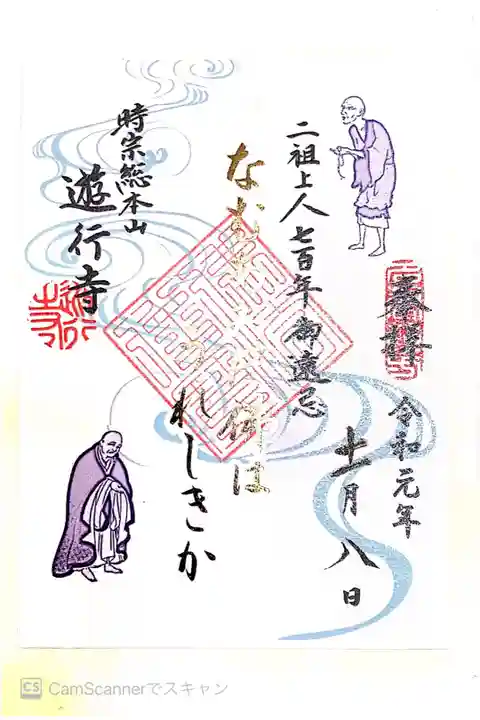 奉拝
令和元年
十一月八日
二祖上人七百年御遠忌
なむ
仰は
うれしきか
時宗総本山
遊行寺
遊行寺
CS CamScannerでスキャン